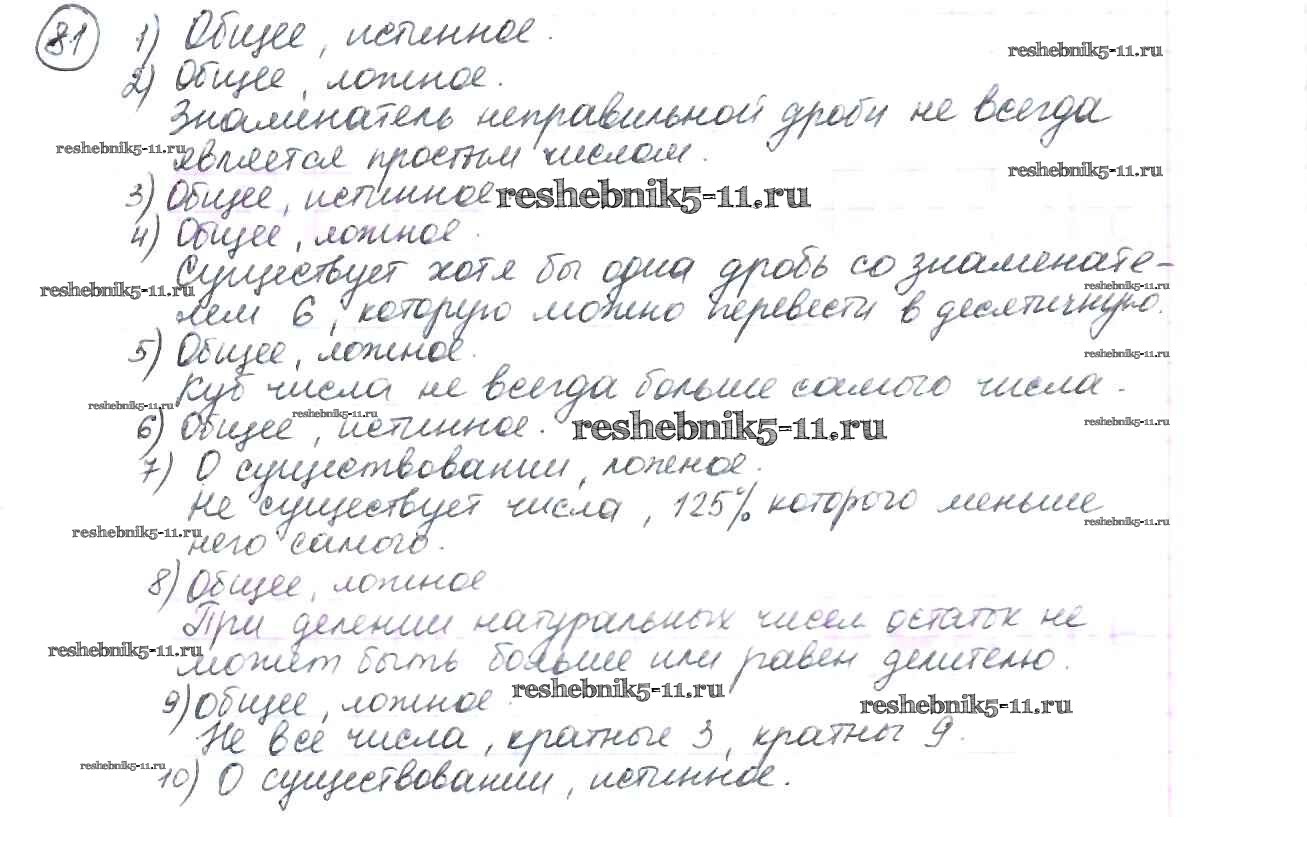 81 1) Общее, истинное.
reshebnik5-11.ru
2) Общее, ложное.
Знаменатель неправильной дроби не всегда
reshebnik5-11.ru
является простым числом.
reshebnik5-11.ru
3) Общее, истинное reshebnik5-11.ru
4) Общее, ложное.
Существует хотя бы одна дробь со знаменате-
reshebnik5-11.ru
reshebnik5-11.ru
лем 6, которую можно перевести в десятичную.
5) Общее, ложное.
reshebnik5-11.ru
Куб числа не всегда больше самого числа.
reshebnik5-11.ru
reshebnik5-11.ru
reshebnik5-11.ru
6) Общее, истинное. reshebnik5-11.ru
7) О существовании, ложное.
Не существует числа, 125% которого меньше
reshebnik5-11.ru
reshebnik5-11.ru
него самого.
8) Общее, ложное
При делении натуральных чисел остаток не
reshebnik5-11.ru
может быть больше или равен делителю.
9) Общее, ложное. reshebnik5-11.ru
reshebnik5-11.ru
Не все числа, кратные 3, кратны 9.
reshebnik5-11.ru
10) О существовании, истинное.